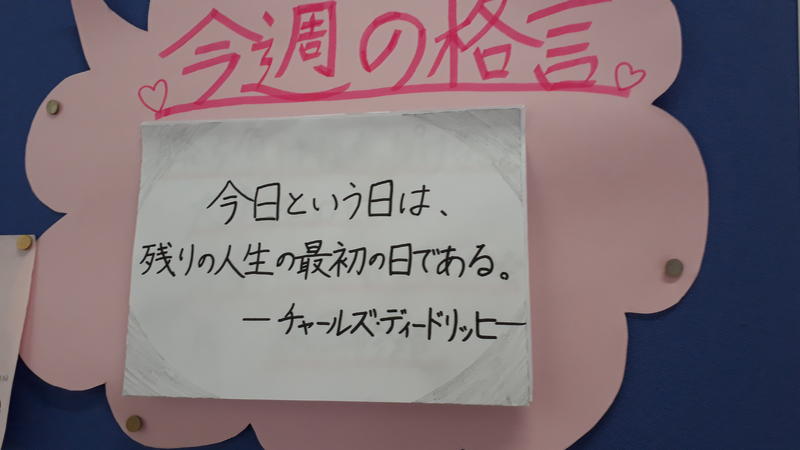 今週の格言
今日という日は、
残りの人生の最初の日である。
ーチャールズ・ディードリッヒー